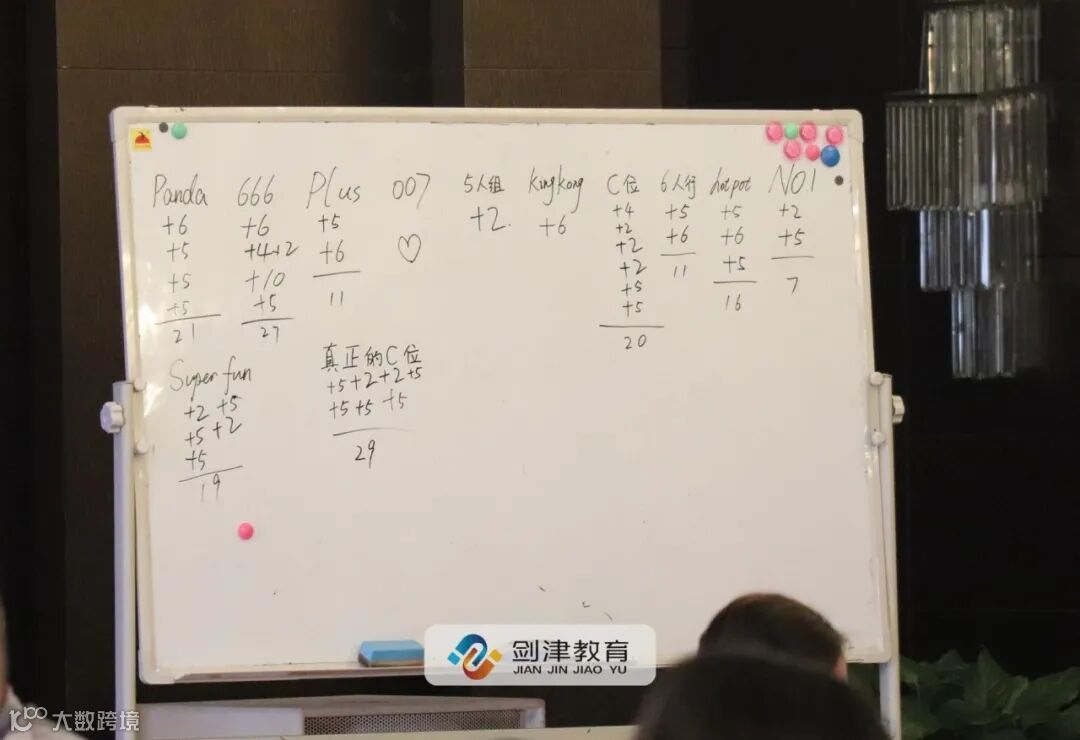 Panda 666 Plus 007 5人组 kingkong C位 6人行 hotpot NO1
+6 +6 +5 +2 +6 +4 +5 +5 +2
+5 +4+2 +6 ♡ +2 +6 +6 +5
+5 +10 11 +2 11 +5 7
+5 +5 +2 16
21 27 +5
+5
20
Super fun 真正的C位
+2 +5 +5+2+2+5
+5 +2 +5+5 +5
+5 29
19
剑津教育
JIAN JIN JIAO YU
大数跨境